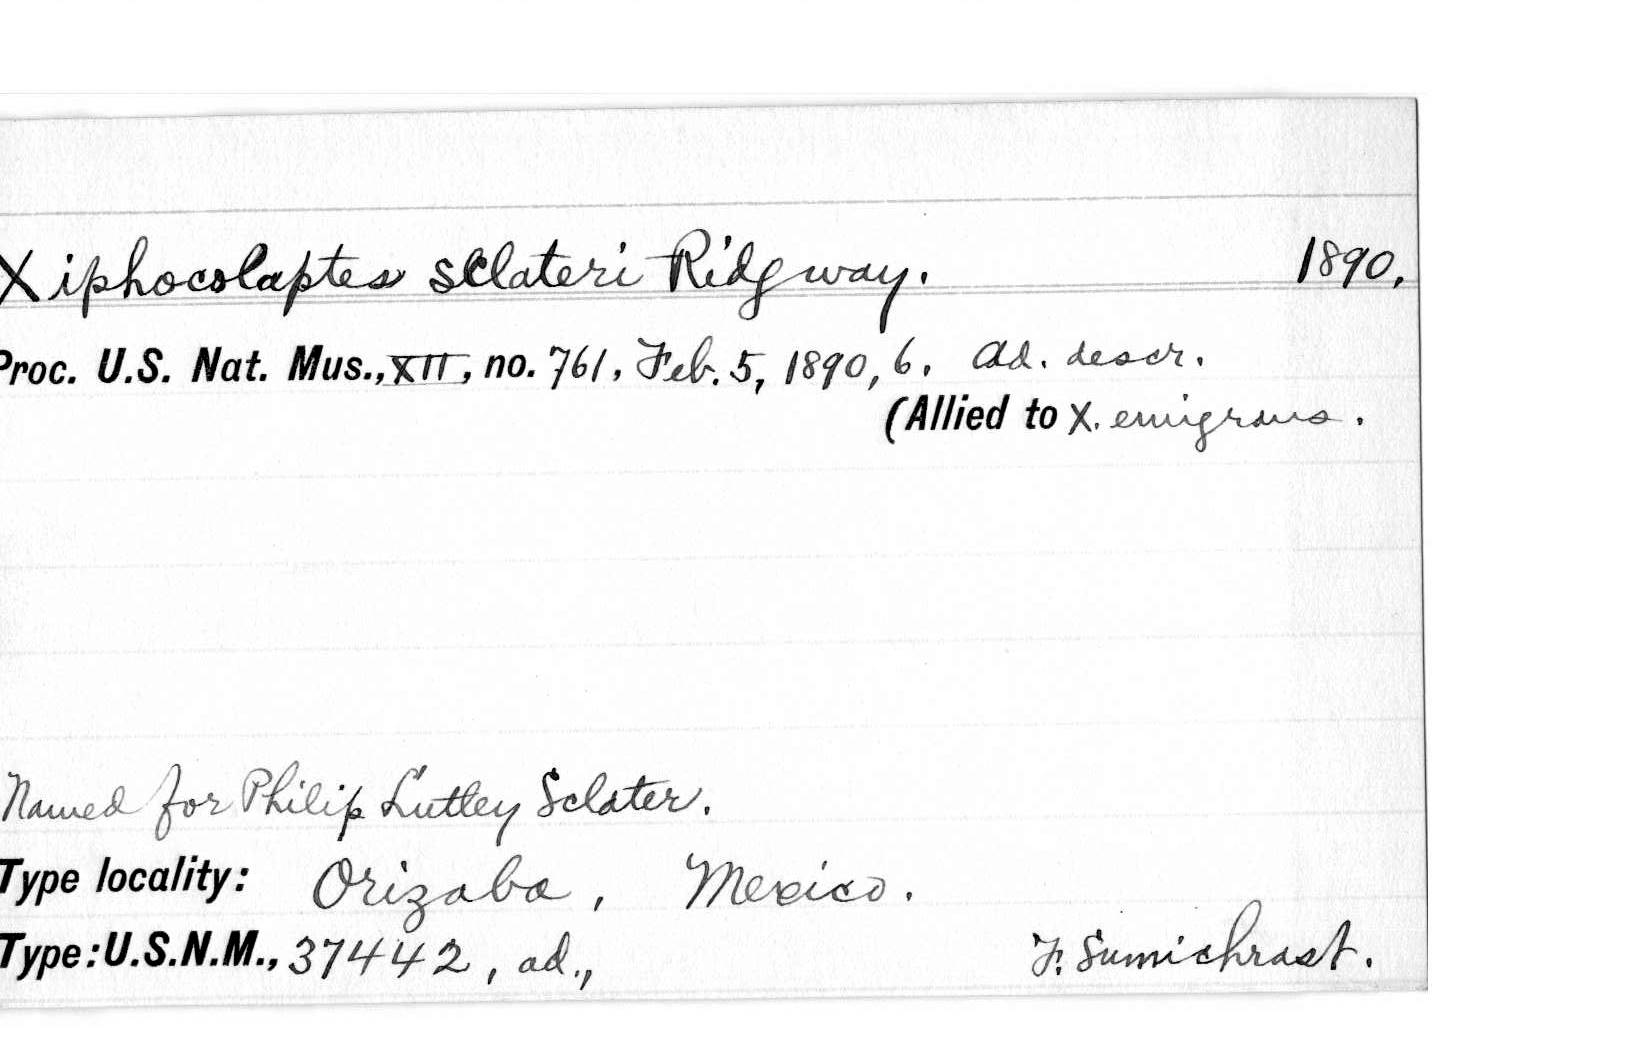 Xiphocolaptes sclateri Ridgway. 1890.
Proc. U.S. Nat. Mus., XII, no. 761, Feb. 5, 1890, 6. Ad. descr.
(Allied to X. emigrans.
Named for Philip Lutley Sclater.
Type locality: Orizaba, Mexico.
Type: U.S.N.M., 37442, ad., F. Sumichrast.